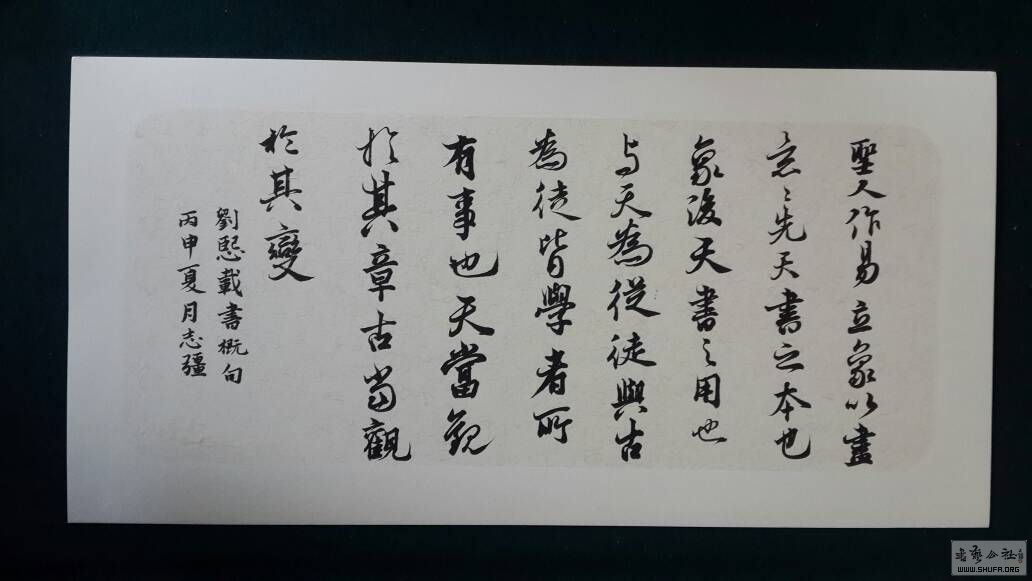 聖人作易立象以盡
意〻先天書之本也
象後天書之用也
与天為從徒與古
為徒皆學者所
有事也天當觀
於其章古当觀
於其變
劉熙載書概句
丙申夏月志疆
书艺公社
WWW.SHUFA.ORG